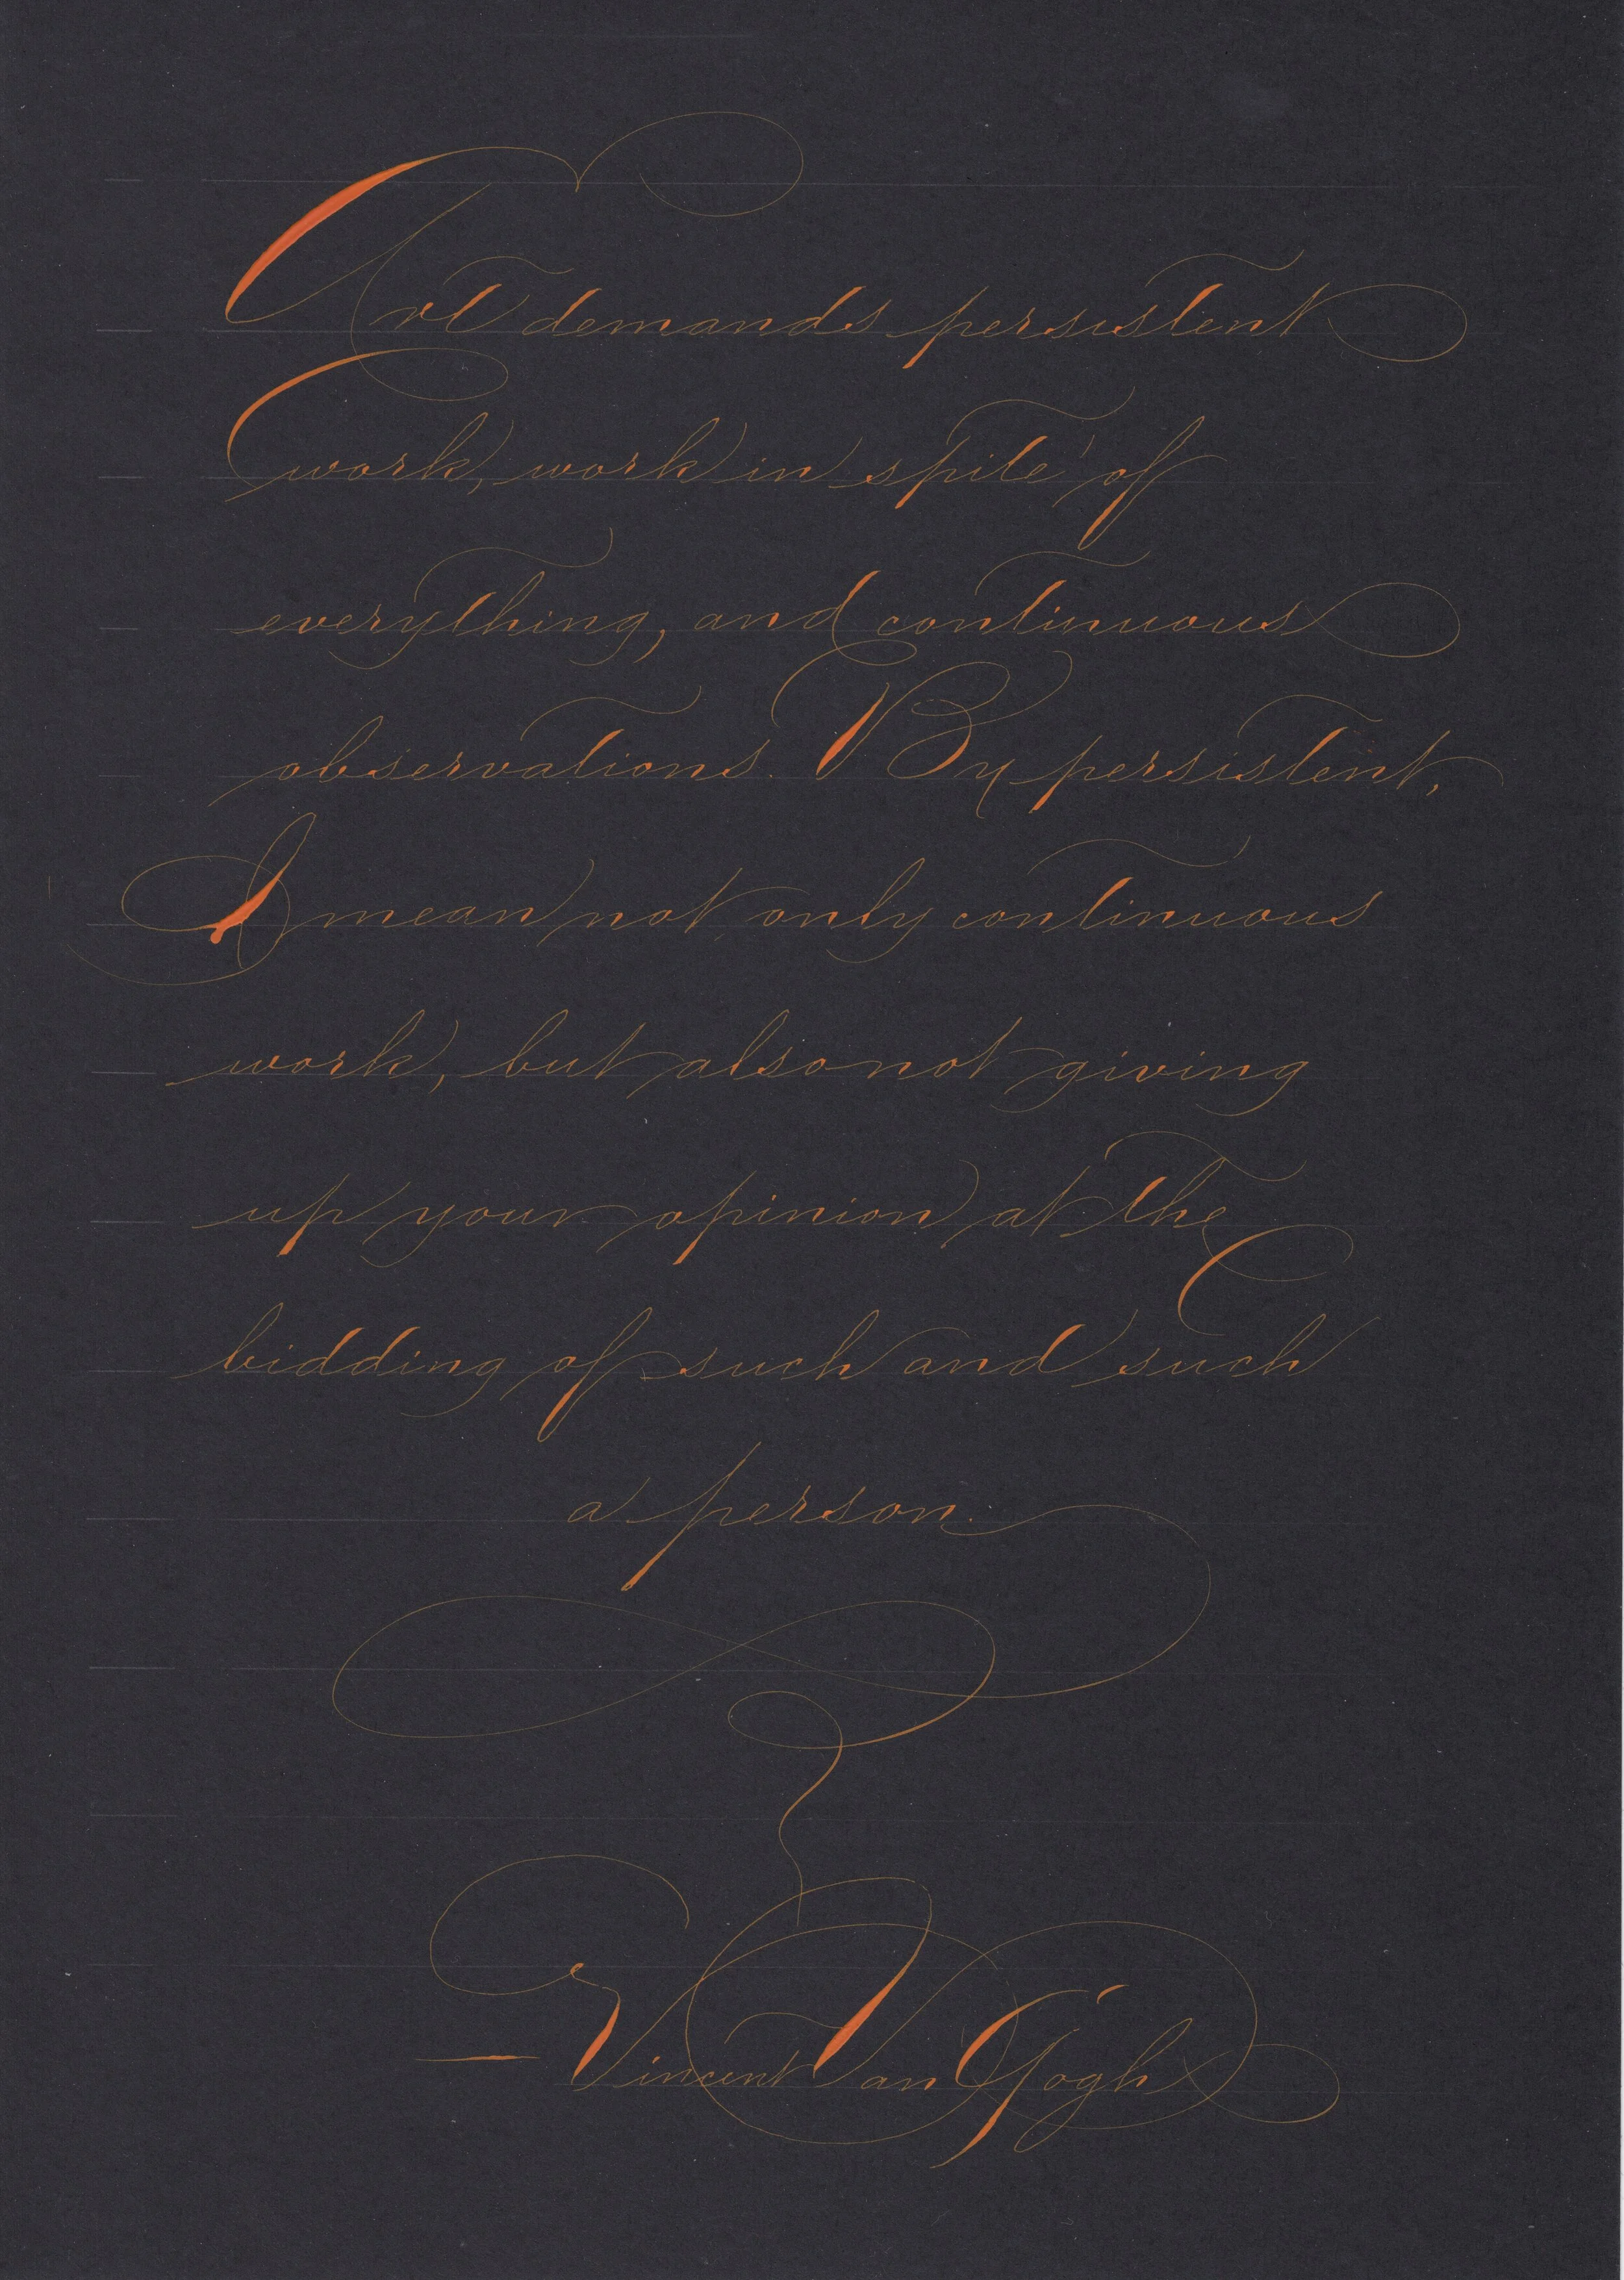 Art demands persistent
work, work in spite of
everything, and continuous
observations. By persistent,
I mean not only continuous
work, but also not giving
up your opinion at the
bidding of such and such
a person.
— Vincent Van Gogh